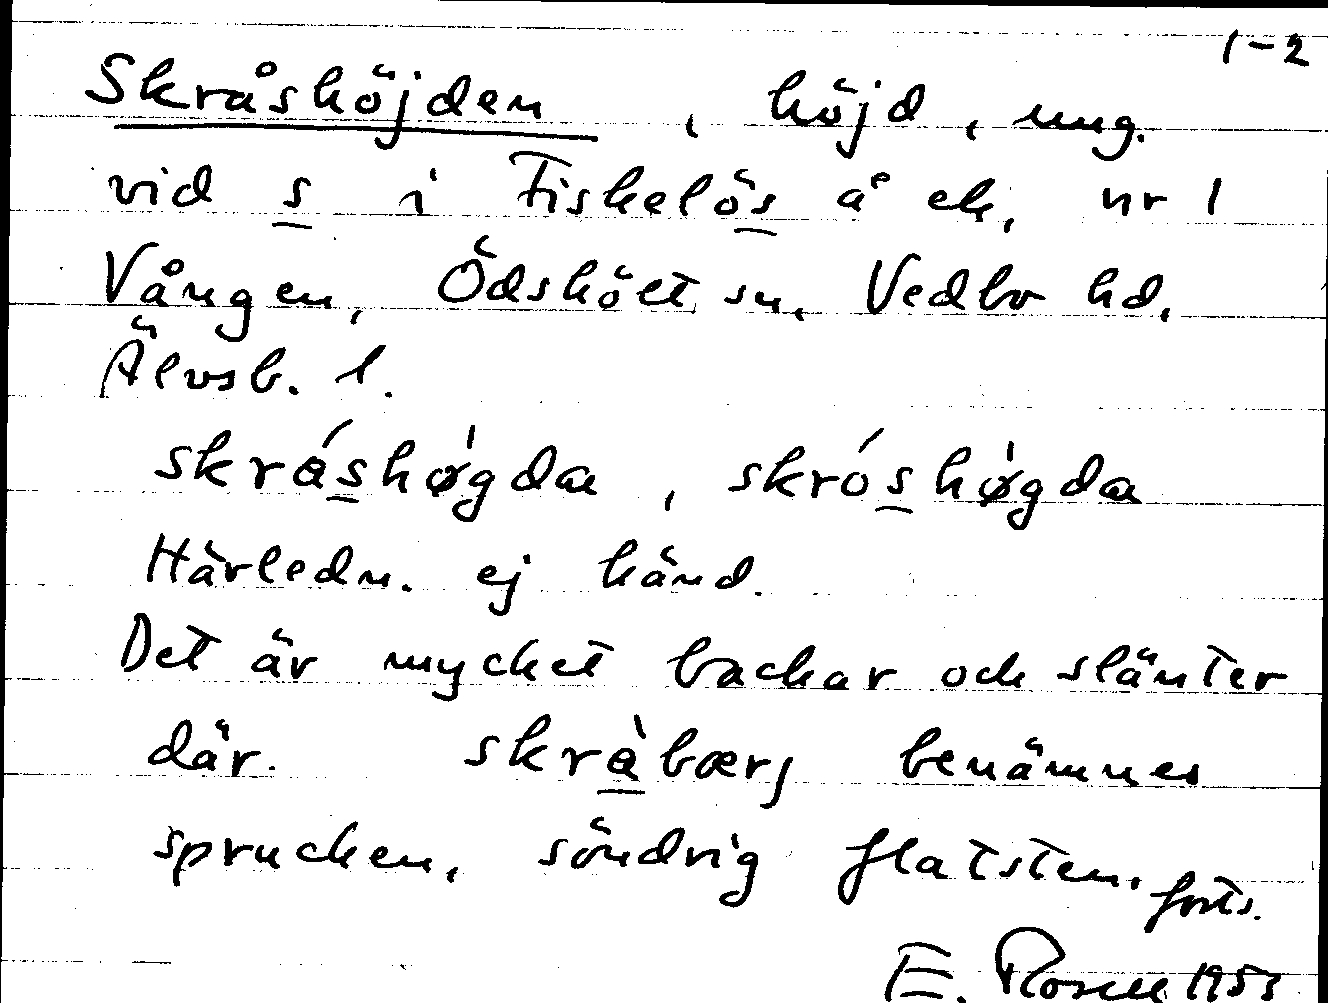 1-2
Skråshöjden, höjd, ung.
vid s i Fiskelös å ek. nr 1
Vången, Ödskölt sn. Vedbo hd.
Älvsb. l.
skráshøgda, skróshøgda
Härledn. ej känd.
Det är mycket backar och slänter
där. skràbærj benämnes
sprucken, söndrig flatsten. forts.
E. Rosell 1953